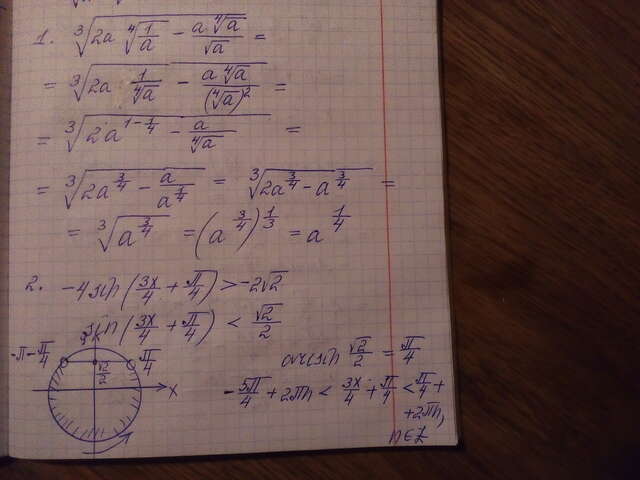 1. ∛(2a ∜(1/a) − a∜a/√a) =
= ∛(2a 1/∜a − a∜a/(∜a)²) =
= ∛(2a^(1−1/4) − a/∜a) =
= ∛(2a^(3/4) − a/a^(1/4)) = ∛(2a^(3/4) − a^(3/4)) =
= ∛(a^(3/4)) = (a^(3/4))^(1/3) = a^(1/4)
2. −4sin(3x/4 + π/4) > −2√2
sin(3x/4 + π/4) < √2/2
-π-π/4
√2/2
π/4
x
arcsin √2/2 = π/4
−5π/4 + 2πn < 3x/4 + π/4 < π/4 +
+2πn,
n∈Z